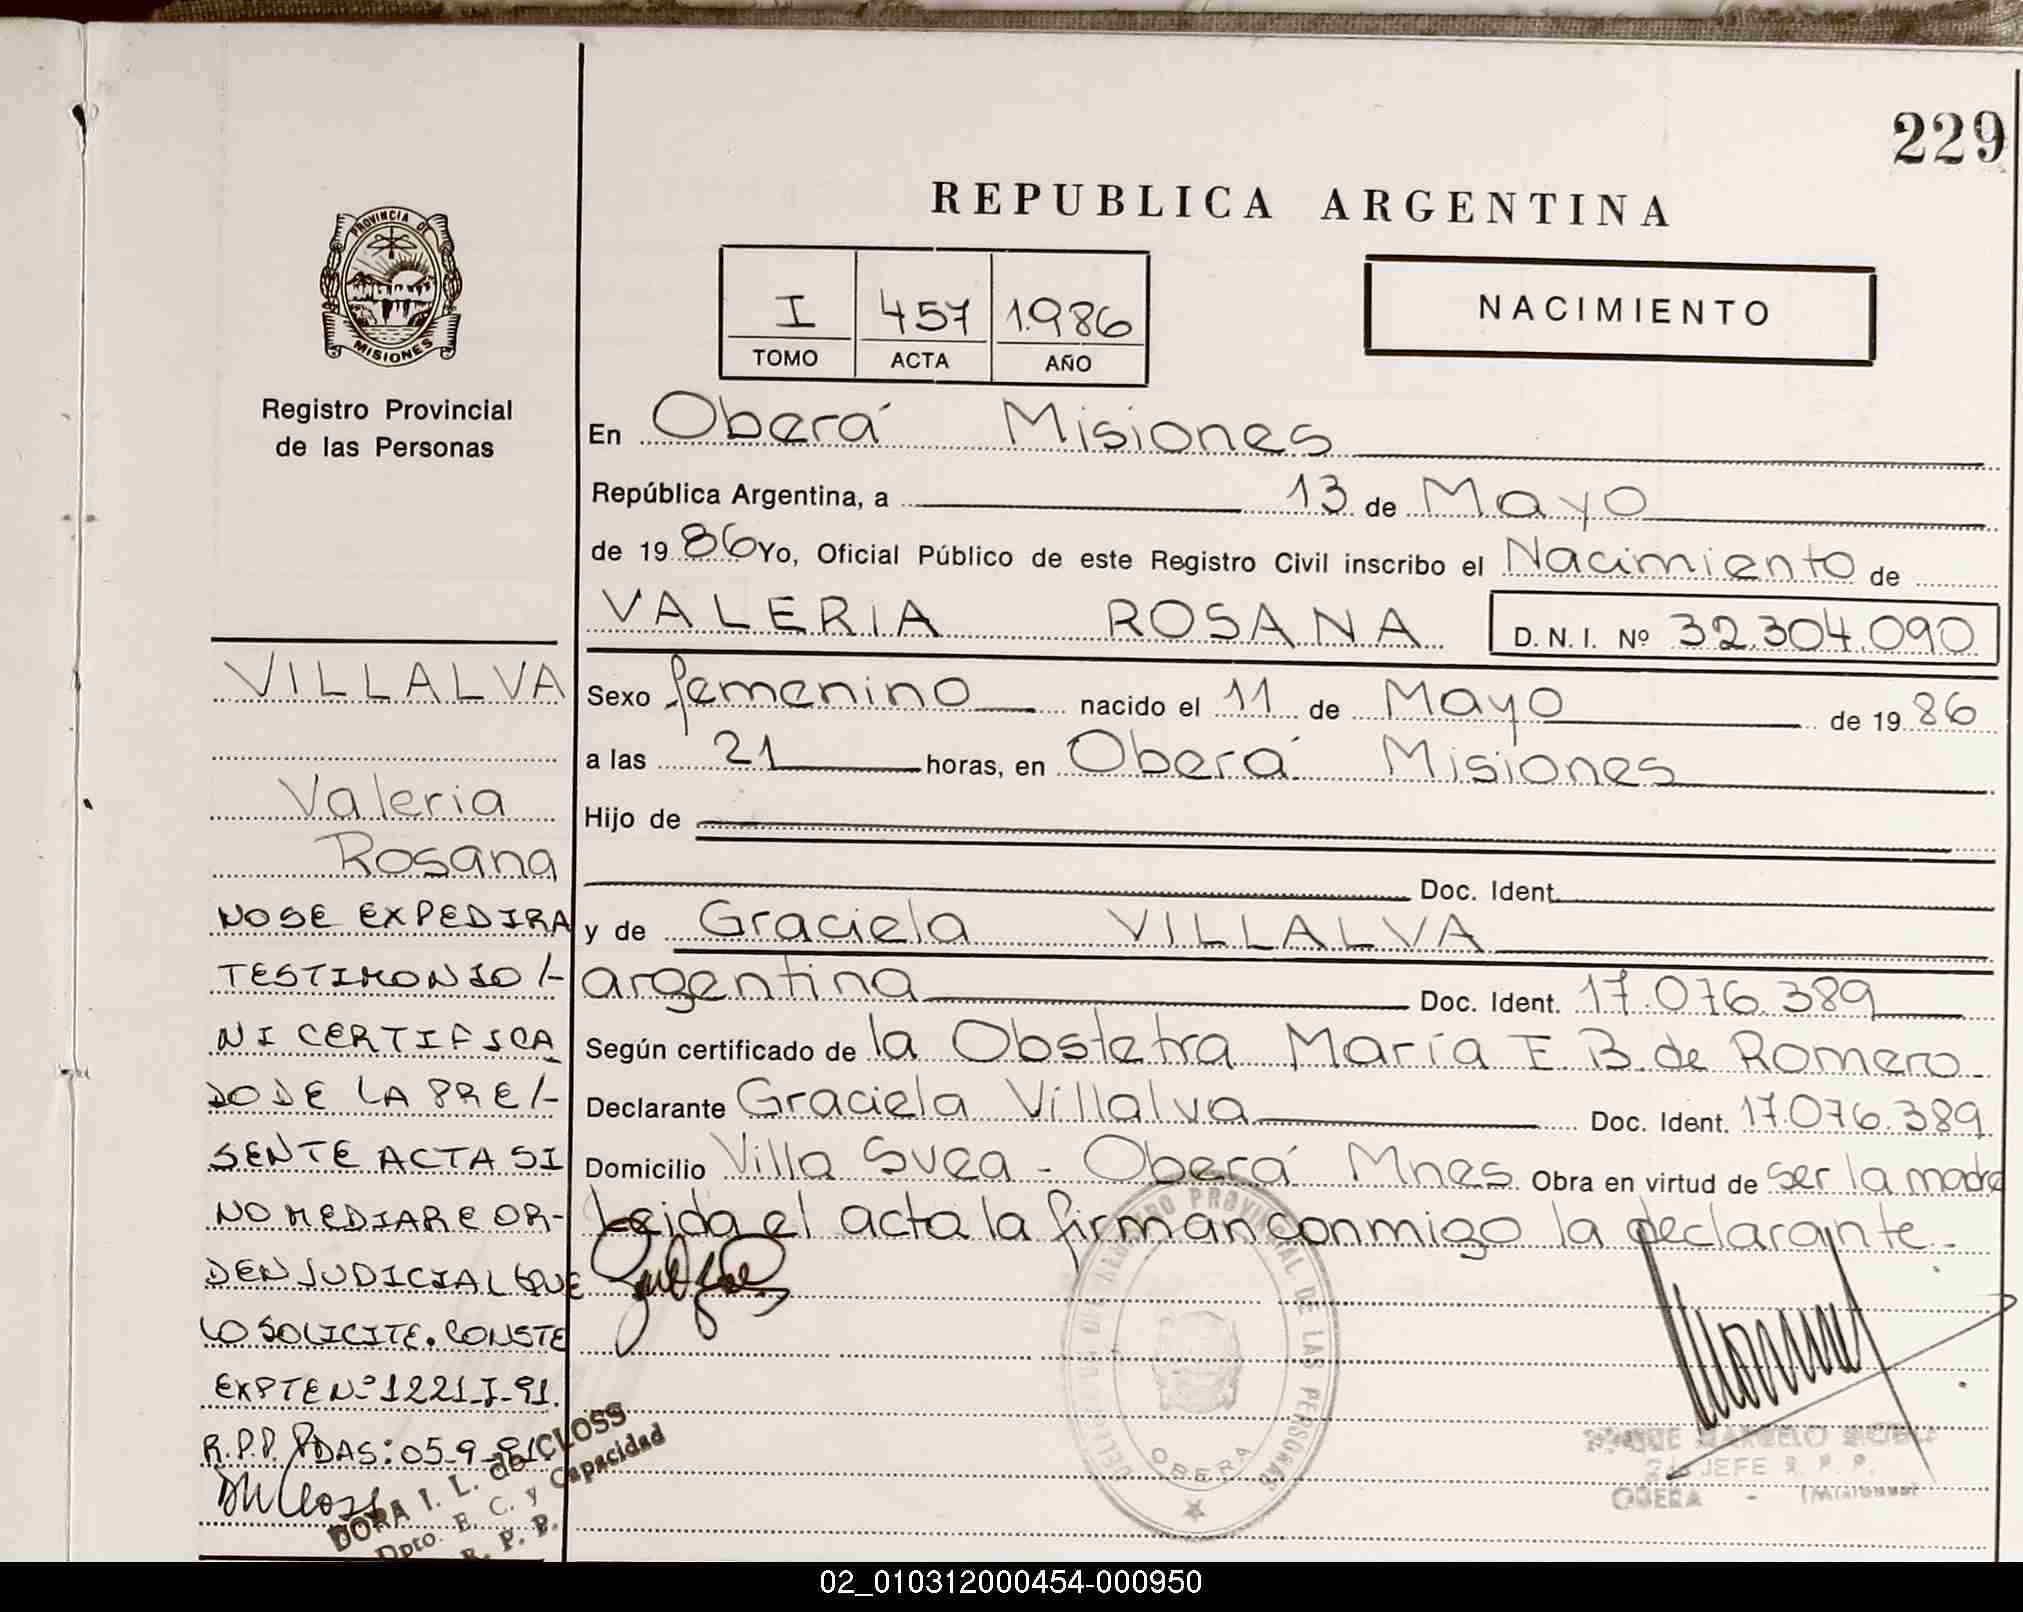 229
REPUBLICA ARGENTINA
PROVINCIA DE
MISIONES
Registro Provincial
de las Personas
I 457 1.986
TOMO ACTA AÑO
NACIMIENTO
En Oberá Misiones
República Argentina, a 13 de Mayo
de 19 86 Yo, Oficial Público de este Registro Civil inscribo el Nacimiento de
VALERIA ROSANA D. N. I. Nº 32.304.090
Sexo femenino nacido el 11 de Mayo de 19 86
a las 21 horas, en Oberá Misiones
Hijo de
Doc. Ident.
y de Graciela VILLALVA
argentina Doc. Ident. 17.076.389
Según certificado de la Obstetra María E. B. de Romero
Declarante Graciela Villalva Doc. Ident. 17.076.389
Domicilio Villa Svea - Oberá Mnes Obra en virtud de ser la madre
Leida el acta la firman conmigo la declarante.-
VILLALVA
Valeria
Rosana
NO SE EXPEDIRA
TESTIMONIO/-
NI CERTIFICA
DO DE LA PRE/-
SENTE ACTA SI
NO MEDIARE OR-
DEN JUDICIAL QUE
LO SOLICITE. CONSTE
EXPTE Nº 1221-J-91.
R.P.P. PDAS: 05-9-91
DORA I. L. de CLOSS
Dpto. E. C. y Capacidad
R. P. P.
DELEGACION DE REGISTRO PROVINCIAL DE LAS PERSONAS
OBERA
MARCELO
JEFE R. P. P.
OBERA - (Misiones)
02_010312000454-000950